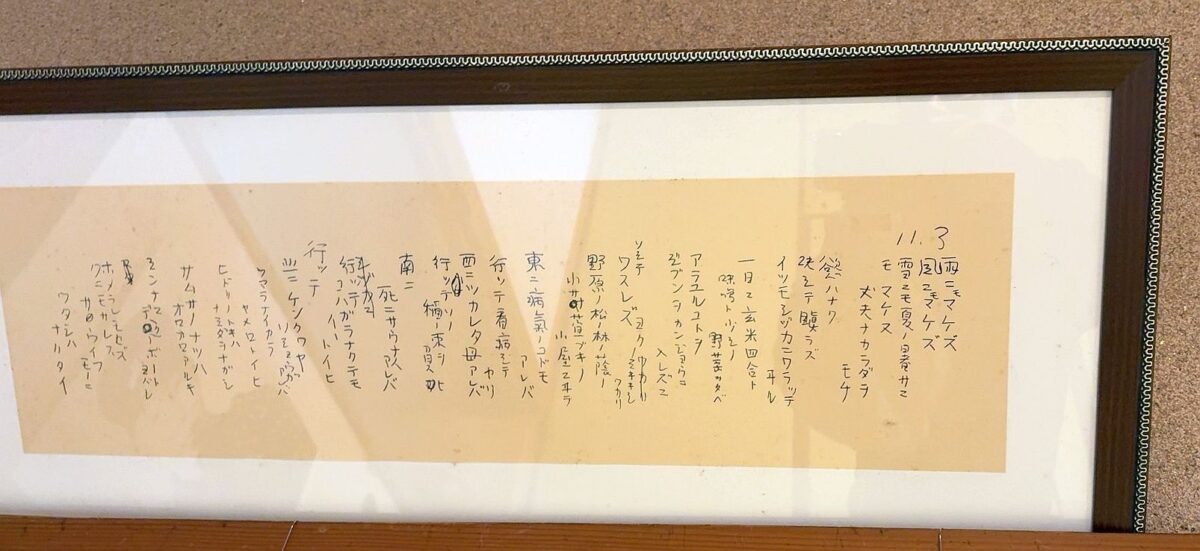 11.3
雨ニモマケズ
風ニモマケズ
雪ニモ夏ノ暑サニ
モマケヌ
丈夫ナカラダヲ
モチ
慾ハナク
決シテ瞋ラズ
イツモシヅカニワラッテ
ヰル
一日ニ玄米四合ト
味噌ト少シノ
野菜ヲタベ
アラユルコトヲ
ジブンヲカンジョウニ
入レズニ
ヨクミキキシ
ワカリ
ソシテ
ワスレズ
野原ノ松ノ林ノ蔭ノ
小サナ萓ブキノ
小屋ニヰテ
東ニ病気ノコドモ
アレバ
行ッテ看病シテ
ヤリ
西ニツカレタ母アレバ
行ッテソノ
稲ノ束ヲ
負ヒ
南ニ
死ニサウナ人
アレバ
行ッテ
コハガラナクテモ
イヽトイヒ
北ニケンクヮヤ
ソショウガ
アレバ
ツマラナイカラ
ヤメロトイヒ
ヒドリノトキハ
ナミダヲナガシ
サムサノナツハ
オロオロアルキ
ミンナニ
デクノボートヨバレ
ホメラレモセズ
クニモサレズ
サウイフ
モノニ
ワタシハ
ナリタイ